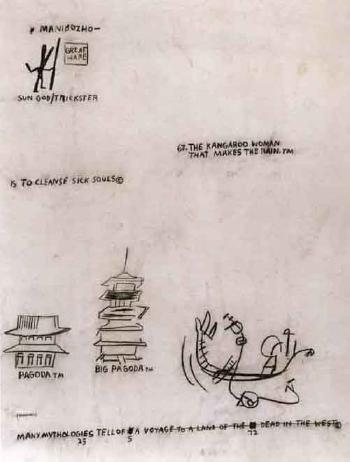 * MANIBOZHO-
GREAT
HARE
SUN GOD/TRICKSTER
67. THE KANGAROO WOMAN
THAT MAKES THE RAIN.™
15 TO CLEANSE SICK SOULS©
PAGODA™
BIG PAGODA™
MANY MYTHOLOGIES TELL OF A VOYAGE TO A LAND OF THE DEAD IN THE WEST©
25 5 72